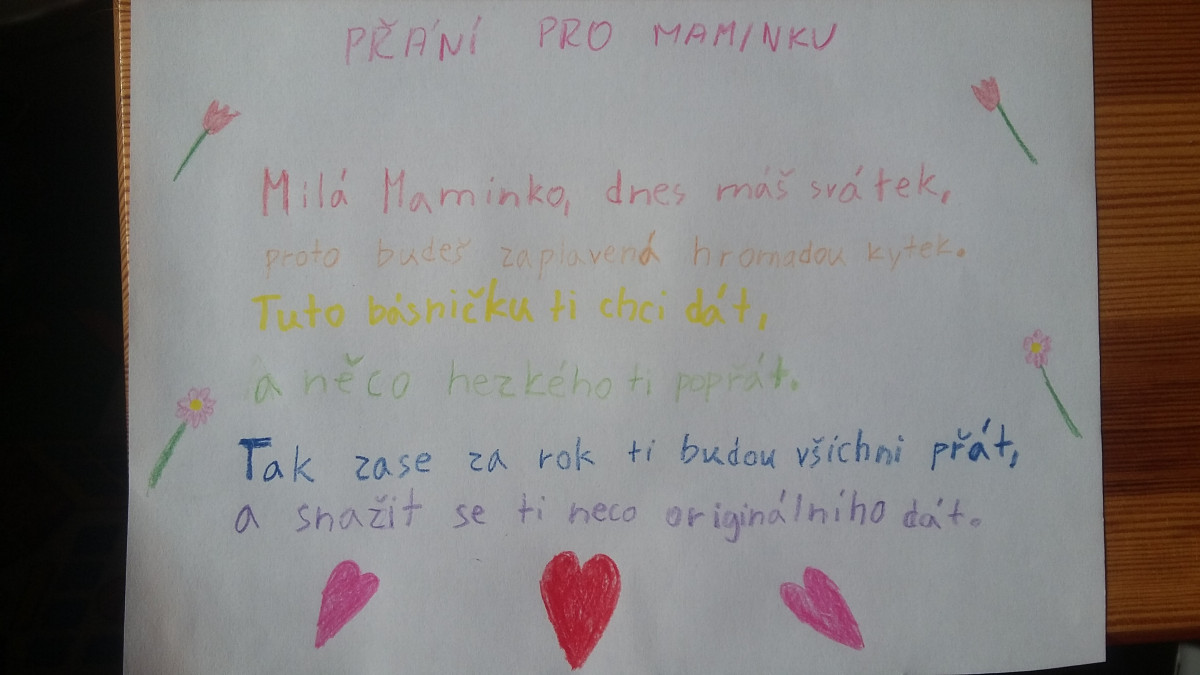 PŘÁNÍ PRO MAMINKU
Milá Maminko, dnes máš svátek,
proto budeš zaplavená hromadou kytek.
Tuto básničku ti chci dát,
a něco hezkého ti popřát.
Tak zase za rok ti budou všíchni přát,
a snažit se ti neco originálního dát.